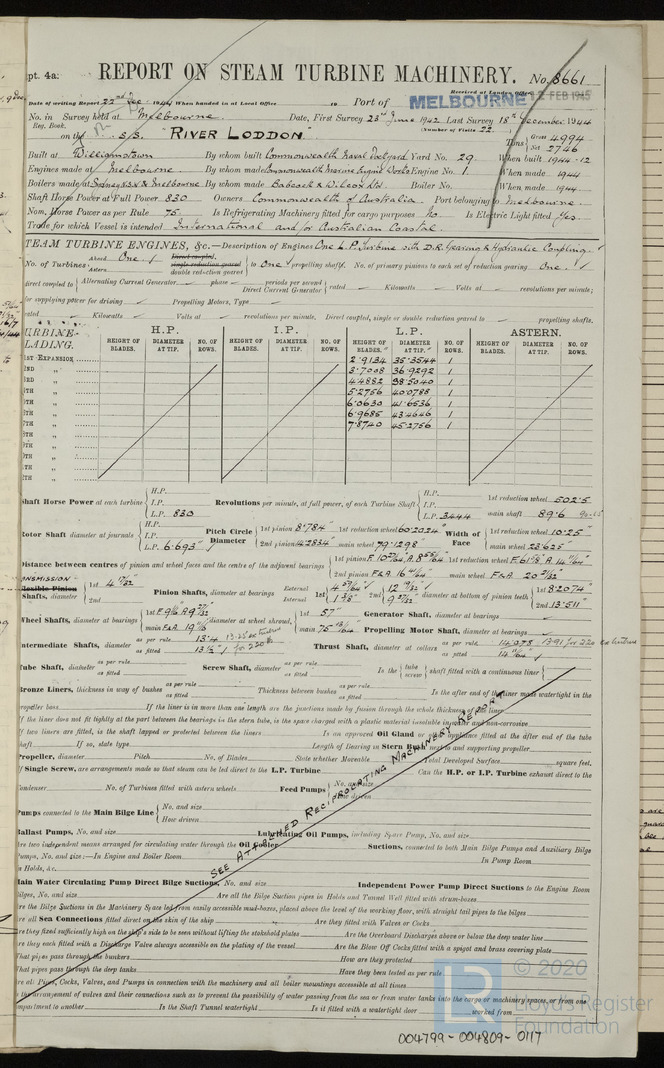 pt. 4a:
REPORT ON STEAM TURBINE MACHINERY. No. 8661
Received at London Office 12 FEB 1945
Date of writing Report 22nd Dec 1944 When handed in at Local Office 19 Port of MELBOURNE
No. in Survey held at Melbourne Date, First Survey 23rd June 1942 Last Survey 18th December 1944
Reg. Book. (Number of Visits 22)
on the S/S. "RIVER LODDON" Tons { Gross 4994 Net 2746
Built at Williamstown By whom built Commonwealth Naval Dockyard Yard No. 29 When built 1944-12
Engines made at Melbourne By whom made Commonwealth Marine Engine Works Engine No. 1 When made 1944
Boilers made at Sydney N.S.W. & Melbourne By whom made Babcock & Wilcox Ltd Boiler No. When made 1944
Shaft Horse Power at Full Power 830 Owners Commonwealth of Australia Port belonging to Melbourne
Nom. Horse Power as per Rule 75 Is Refrigerating Machinery fitted for cargo purposes No Is Electric Light fitted Yes
Trade for which Vessel is intended International and for Australian Coastal
STEAM TURBINE ENGINES, &c.—Description of Engines One L.P. Turbine with D.R. Gearing & Hydraulic Coupling
No. of Turbines { Ahead One Astern { Direct coupled, single reduction geared double reduction geared } to One propelling shafts. No. of primary pinions to each set of reduction gearing One.
direct coupled to { Alternating Current Generator phase periods per second Direct Current Generator } rated Kilowatts Volts at revolutions per minute;
for supplying power for driving Propelling Motors, Type
rated Kilowatts Volts at revolutions per minute. Direct coupled, single or double reduction geared to propelling shafts.
TURBINE BLADING. H.P. I.P. L.P. ASTERN.
HEIGHT OF BLADES. DIAMETER AT TIP. NO. OF ROWS. HEIGHT OF BLADES. DIAMETER AT TIP. NO. OF ROWS. HEIGHT OF BLADES. DIAMETER AT TIP. NO. OF ROWS. HEIGHT OF BLADES. DIAMETER AT TIP. NO. OF ROWS.
1ST EXPANSION 2.9134 35.3544 1
2ND " 3.7008 36.9292 1
3RD " 4.4882 38.5040 1
4TH " 5.2756 40.0788 1
5TH " 6.0630 41.6536 1
6TH " 6.9685 43.4646 1
7TH " 7.8740 45.2756 1
Shaft Horse Power at each turbine { H.P. I.P. L.P. 830 Revolutions per minute, at full power, of each Turbine Shaft { H.P. I.P. L.P. 3444 1st reduction wheel 502.5 main shaft 89.6
Rotor Shaft diameter at journals { H.P. I.P. L.P. 6.693" Pitch Circle Diameter { 1st pinion 8.784" 2nd pinion 14.2834" 1st reduction wheel 60.2024" main wheel 79.1298" Width of Face { 1st reduction wheel 10.25" main wheel 23.625"
Distance between centres of pinion and wheel faces and the centre of the adjacent bearings { 1st pinion 2nd pinion 1st reduction wheel main wheel F&A 20 21/32
Shafts, diameter { 1st 2nd Pinion Shafts, diameter at bearings External Internal 1st 2nd diameter at bottom of pinion teeth { 1st 8.2074 2nd 13.511"
Wheel Shafts, diameter at bearings { 1st main diameter at wheel shroud, { 1st 57" main Generator Shaft, diameter at bearings Propelling Motor Shaft, diameter at bearings
Intermediate Shafts, diameter as per rule 13.4 as fitted 13½" Thrust Shaft, diameter at collars as per rule 14.078 as fitted
Tube Shaft, diameter as per rule as fitted Screw Shaft, diameter as per rule as fitted Is the { tube screw } shaft fitted with a continuous liner {
Bronze Liners, thickness in way of bushes as per rule as fitted Thickness between bushes as per rule as fitted Is the after end of the liner made watertight in the
propeller boss If the liner is in more than one length are the junctions made by fusion through the whole thickness of the liner
If the liner does not fit tightly at the part between the bearings in the stern tube, is the space charged with a plastic material insoluble in water and non-corrosive
If two liners are fitted, is the shaft lapped or protected between the liners Is an approved Oil Gland or other appliance fitted at the after end of the tube
shaft If so, state type Length of Bearing in Stern Bush next to and supporting propeller
Propeller, diameter Pitch No. of Blades State whether Moveable Total Developed Surface square feet.
If Single Screw, are arrangements made so that steam can be led direct to the L.P. Turbine Can the H.P. or I.P. Turbine exhaust direct to the
Condenser No. of Turbines fitted with astern wheels Feed Pumps { No. and size How driven
Pumps connected to the Main Bilge Line { No. and size How driven
SEE ATTACHED RECIPROCATING MACHINERY REPORT
Ballast Pumps, No. and size Lubricating Oil Pumps, including Spare Pump, No. and size
Are two independent means arranged for circulating water through the Oil Cooler Suctions, connected to both Main Bilge Pumps and Auxiliary Bilge
Pumps, No. and size:—In Engine and Boiler Room In Pump Room
In Holds, &c.
Main Water Circulating Pump Direct Bilge Suctions, No. and size Independent Power Pump Direct Suctions to the Engine Room
Bilges, No. and size Are all the Bilge Suction pipes in Holds and Tunnel Well fitted with strum-boxes
Are the Bilge Suctions in the Machinery Space led from easily accessible mud-boxes, placed above the level of the working floor, with straight tail pipes to the bilges
Are all Sea Connections fitted direct on the skin of the ship Are they fitted with Valves or Cocks
Are they fixed sufficiently high on the ship's side to be seen without lifting the stokehold plates Are the Overboard Discharges above or below the deep water line
Are they each fitted with a Discharge Valve always accessible on the plating of the vessel Are the Blow Off Cocks fitted with a spigot and brass covering plate
What pipes pass through the bunkers How are they protected
What pipes pass through the deep tanks Have they been tested as per rule
Are all Pipes, Cocks, Valves, and Pumps in connection with the machinery and all boiler mountings accessible at all times
Is the arrangement of valves and their connections such as to prevent the possibility of water passing from the sea or from water tanks into the cargo or machinery spaces, or from one
compartment to another Is the Shaft Tunnel watertight Is it fitted with a watertight door worked from
© 2020
Lloyd's Register
Foundation
004799-004809-0117